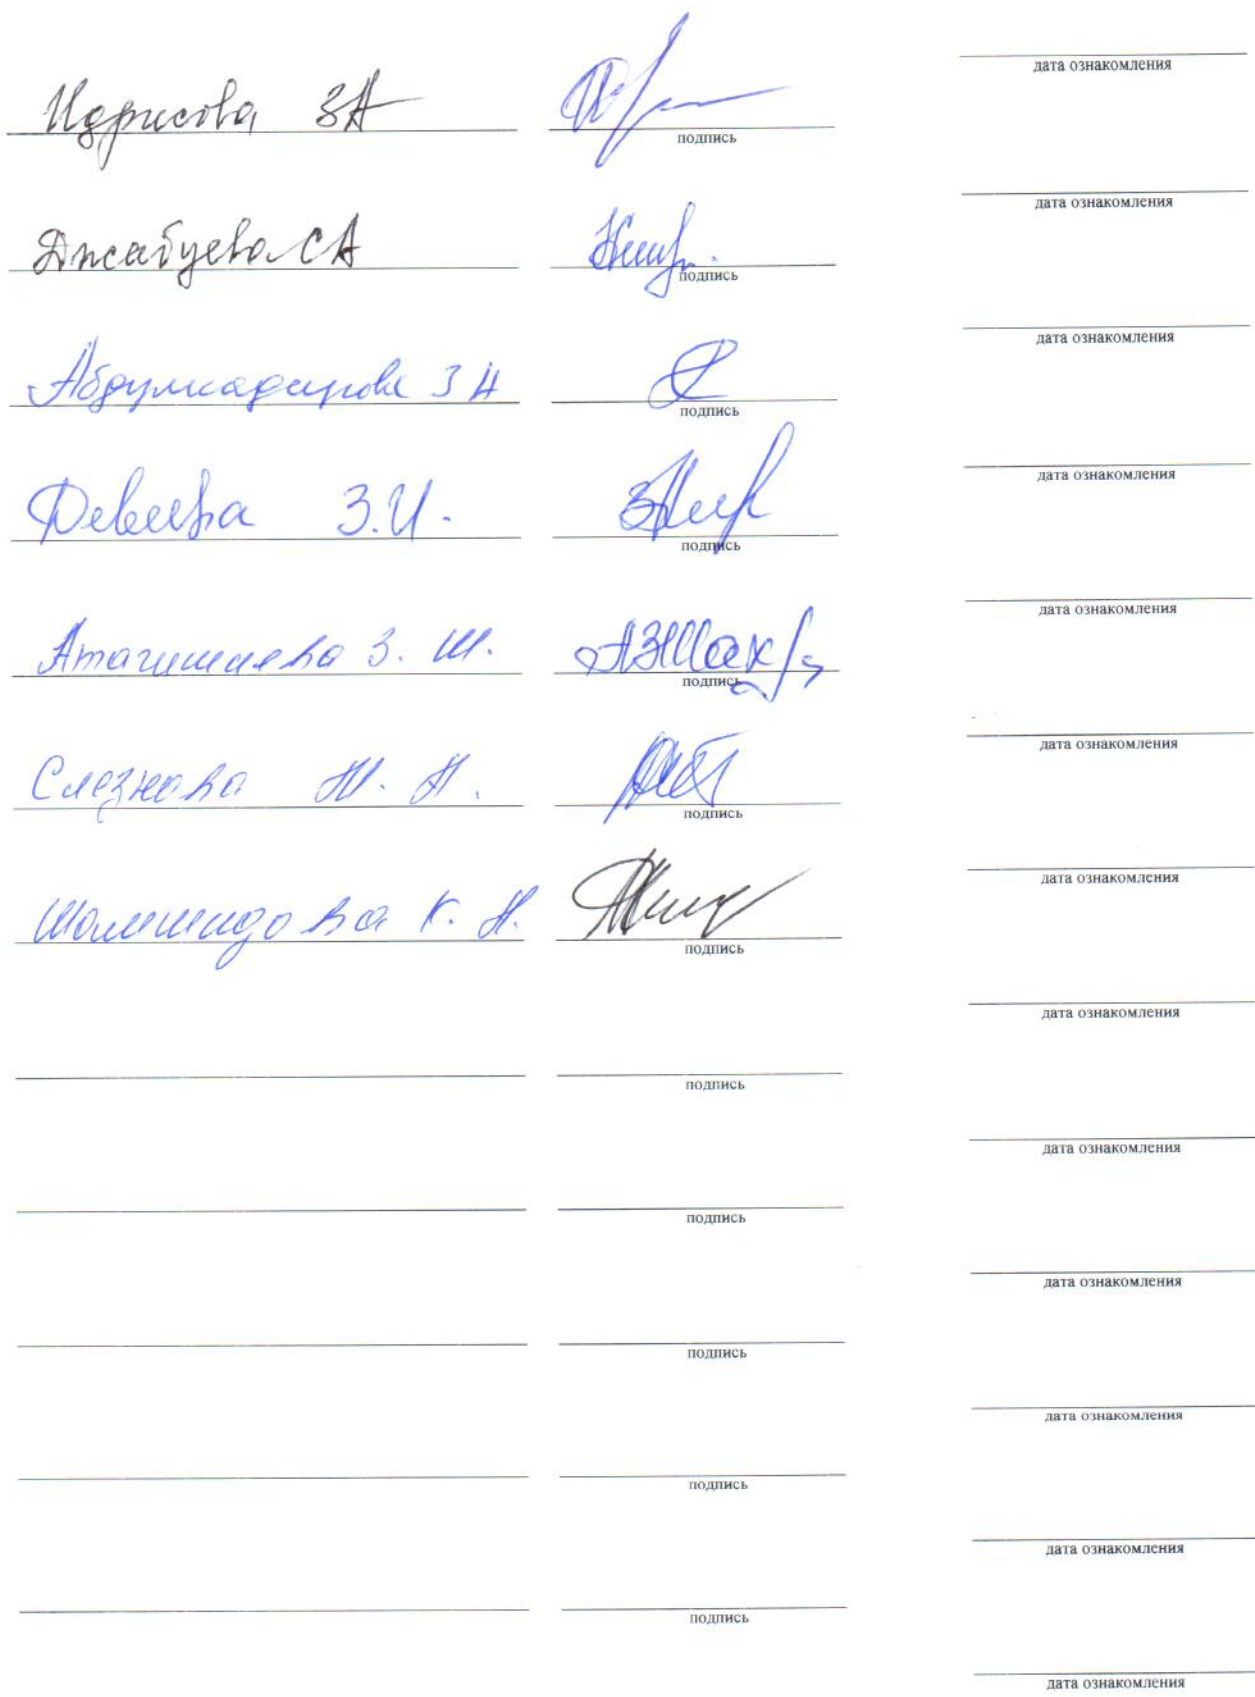 дата ознакомления
Идрисова ЗА
подпись
дата ознакомления
Джабуева СА
подпись
дата ознакомления
Абдулкадирова ЗА
подпись
дата ознакомления
З.И.
подпись
дата ознакомления
Атагишиева З. Ш.
подпись
дата ознакомления
Слезнова
подпись
дата ознакомления
К. Н.
подпись
дата ознакомления
подпись
дата ознакомления
подпись
дата ознакомления
подпись
дата ознакомления
подпись
дата ознакомления
подпись
дата ознакомления